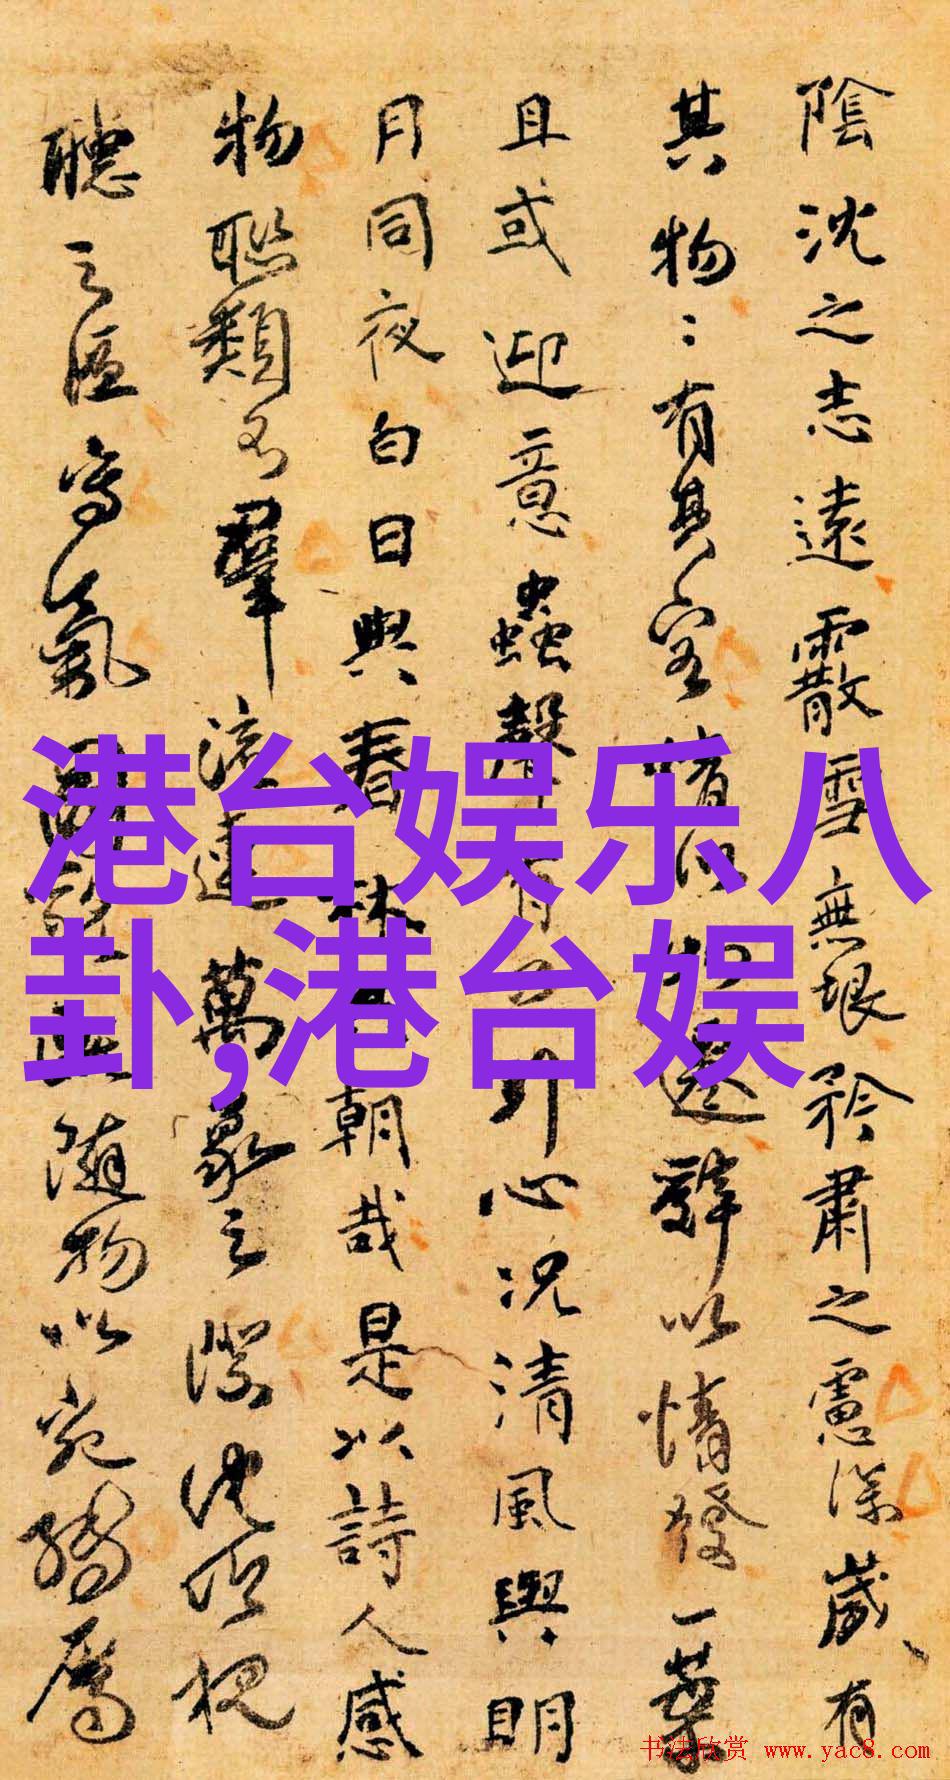 陰沈之志遠霰雪無垠矜肅之慮深歲有
其物〻有其容情以物遷辭以情發一葉
且或迎意蟲聲有引心況清風與明
月同夜白日與春林朝哉是以詩人感
物聯類不羣流連萬象之際沈吟視
聽之區寫氣圖隨物以宛轉屬
港台娱乐八
卦,港台娱
书法欣赏 www.yac8.com